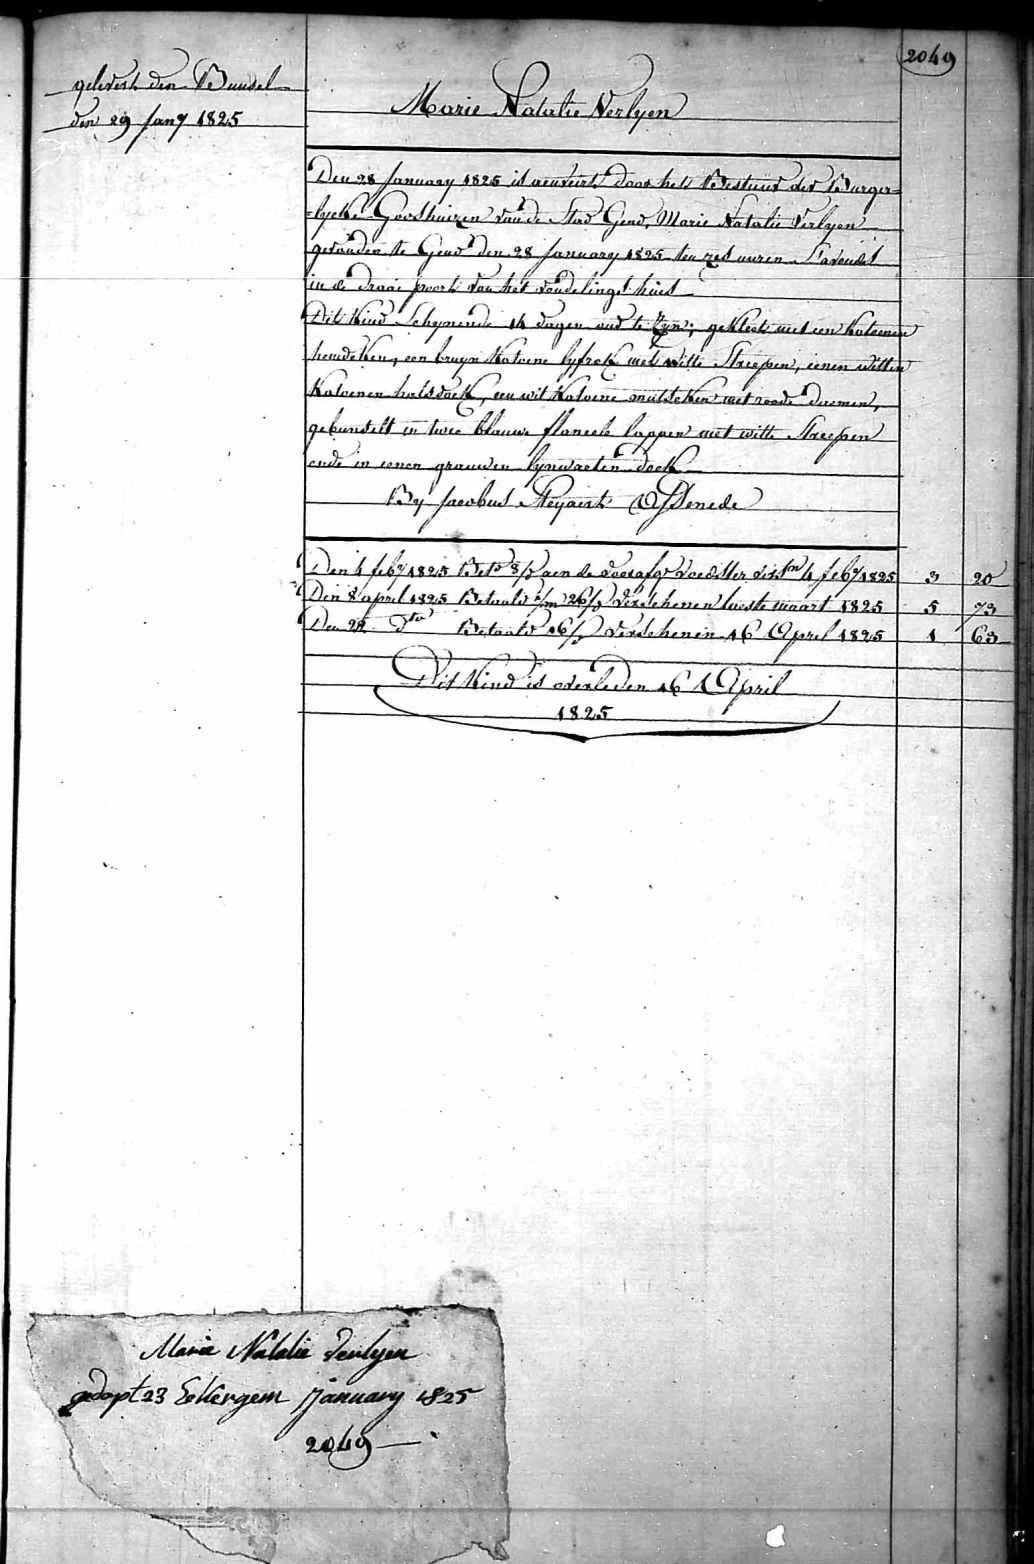 2049
gelevert den Bundel
den 29 Jany 1825
Marie Natalie Verlyen
Den 28 January 1825 is aenveirt door het Bestuur der Burger=
=lycke Godshuizen van de Stad Gend, Marie Natalie Verlyen
gevonden te Gend den 28 January 1825 ten zes uuren S'avonds
in de draai poort van het vondelings huis
Dit Kind Schynende 14 dagen oud te Zyn; gekleed met een Katoenen
hemdeken, een bruyn Katoene lyfrok met witte Streepen, eenen witten
Katoenen halsdoek, een wit Katoene mutseken met roode
gebunselt in twee blauwe flaneele lappen met witte Streepen
ende in eenen grauwen lynwaeten doek
By Jacobus Neyaert Assenede
Den 4 feby 1825 Bet. 8/ aen de voedster vers. 4 feby 1825 3 20
Den 8 april 1825 Betaald 26/ verschenen laeste maart 1825 5 73
Den 22 dto Betaald 16/ verschenen 16 April 1825 1 63
Dit Kind is overleden 16 April
1825
Marie Natalie Verlyen
gedopt 23 Eekergem January 1825
2049